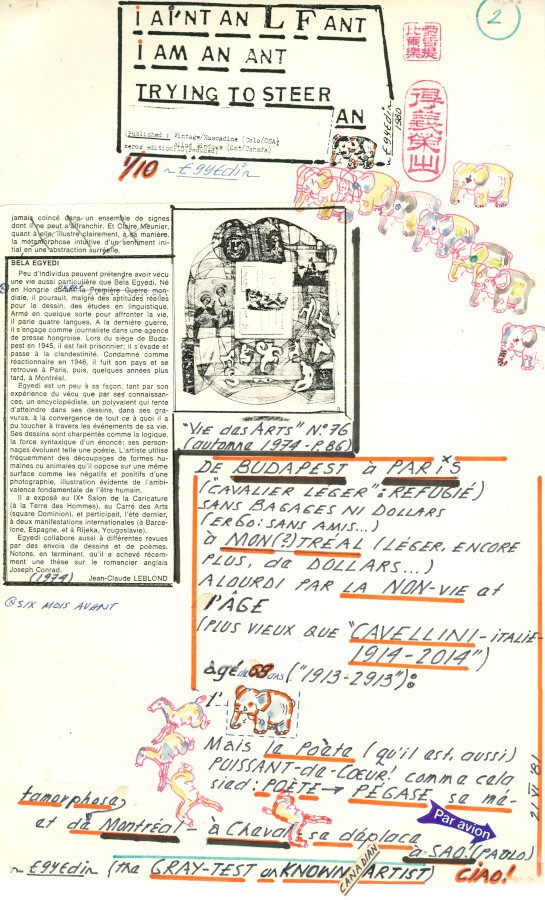 2
I AI'NT AN L F ANT
I AM AN ANT
TRYING TO STEER
AN
(Published : Vintage/Muscadine (Colo/USA)
~EGYEDIN
1980
1/10 ~ EGYEDIN
jamais coincé dans un ensemble de signes
dont il ne peut s'affranchir. Et Claire Meunier,
quant à elle, illustre clairement, à sa manière,
la métamorphose intuitive d'un sentiment ini-
tial en une abstraction surréelle.
BELA EGYEDI
Peu d'individus peuvent prétendre avoir vécu
une vie aussi particulière que Bela Egyedi. Né
en Hongrie durant la Première Guerre mon-
diale, il poursuit, malgré des aptitudes réelles
pour le dessin, des études en linguistique.
Armé en quelque sorte pour affronter la vie,
il parle quatre langues. A la dernière guerre,
il s'engage comme journaliste dans une agence
de presse hongroise. Lors du siège de Buda-
pest en 1945, il est fait prisonnier; il s'évade et
passe à la clandestinité. Condamné comme
réactionnaire en 1946, il fuit son pays et se
retrouve à Paris, puis, quelques années plus
tard, à Montréal.
Egyedi est un peu à sa façon, tant par son
expérience du vécu que par ses connaissan-
ces, un encyclopédiste, un polyvalent qui tente
d'atteindre dans ses dessins, dans ses gra-
vures, à la convergence de tout ce à quoi il a
pu toucher à travers les événements de sa vie.
Ses dessins sont charpentés comme la logique,
la force syntaxique d'un énoncé: ses person-
nages évoluent telle une poésie. L'artiste utilise
fréquemment des découpages de formes hu-
maines ou animales qu'il oppose sur une même
surface comme les négatifs et positifs d'une
photographie, illustration évidente de l'ambi-
valence fondamentale de l'être humain.
Il a exposé au IXe Salon de la Caricature
(à la Terre des Hommes), au Carré des Arts
(square Dominion), et participait, l'été dernier,
à deux manifestations internationales (à Barce-
lone, Espagne, et à Rijeka, Yougoslavie).
Egyedi collabore aussi à différentes revues
par des envois de dessins et de poèmes.
Notons, en terminant, qu'il a achevé récem-
ment une thèse sur le romancier anglais
Joseph Conrad.
(1974) Jean-Claude LEBLOND
SIX MOIS AVANT
"VIE des ARTS" No. 76
(automne 1974 - P.86)
DE BUDAPEST à PARIS
("CAVALIER LÉGER": REFUGIÉ)
SANS BAGAGES NI DOLLARS
(ERGO: SANS AMIS...)
à MON(?)TREAL (LÉGER, ENCORE
PLUS, de DOLLARS...)
ALOURDI PAR LA NON-VIE et
l'ÂGE
(PLUS VIEUX QUE "CAVELLINI - ITALIE
1914-2014")
âgé de 68 ans ("1913-2913"):
l'
Mais le Poète (qu'il est, aussi)
PUISSANT-de-COEUR! comme cela
sied: POÈTE → PÉGASE se mé-
tamorphose,
et de Montréal - à Cheval - se déplace
Par avion
à SAO! (PAOLO)
~ EGYEDIN (the GRAY-TEST unKNOWN ARTIST) CIAO!
CANADIAN
21 VI '81